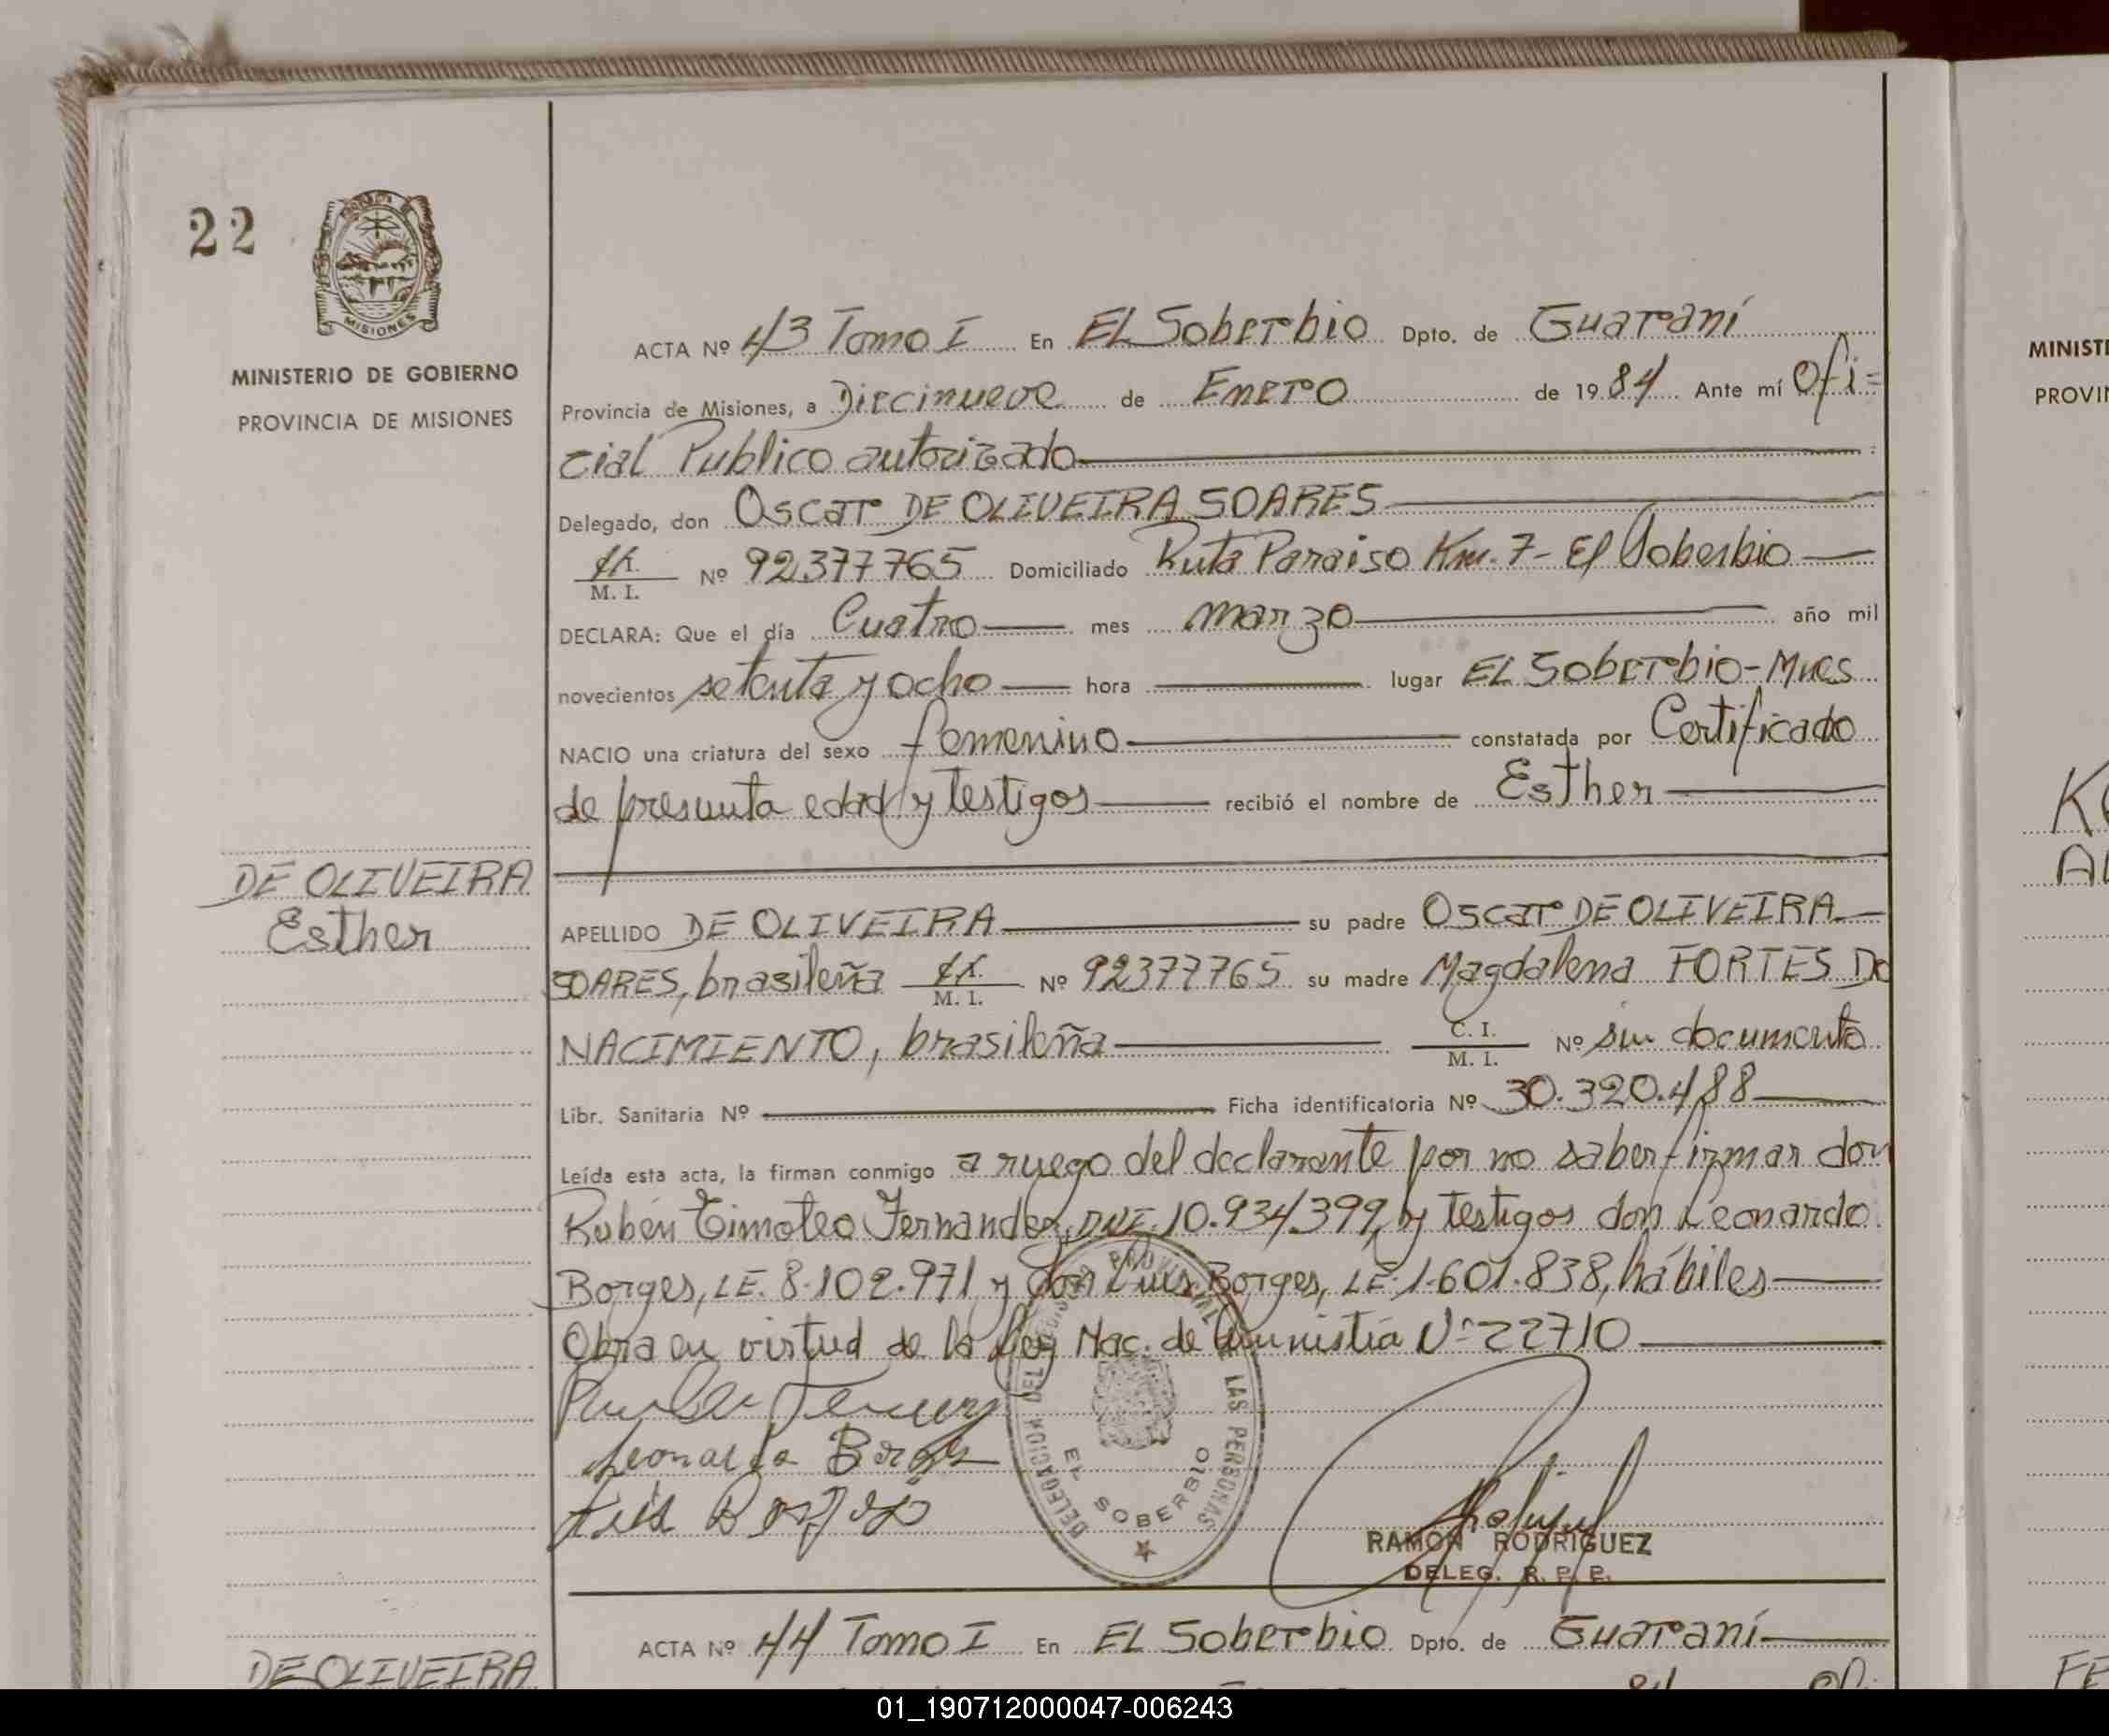 22
MISIONES
MINISTERIO DE GOBIERNO
PROVINCIA DE MISIONES
ACTA Nº 43 Tomo I En EL Soberbio Dpto. de Guaraní
Provincia de Misiones, a Diecinueve de Enero de 1984 Ante mí Ofi=
cial Publico autorizado
Delegado, don Oscar DE OLIVEIRA SOARES
M. I. Nº 92377765 Domiciliado Ruta Paraiso Km. 7- El Soberbio
DECLARA: Que el día Cuatro mes marzo año mil
novecientos setenta y ocho hora lugar EL Soberbio-Mnes
NACIO una criatura del sexo femenino constatada por Certificado
de presunta edad y testigos recibió el nombre de Esther
DE OLIVEIRA
Esther
APELLIDO DE OLIVEIRA su padre Oscar DE OLIVEIRA
SOARES, brasileña M. I. Nº 92377765 su madre Magdalena FORTES DO
NACIMIENTO, brasileña C. I. M. I. Nº sin documento
Libr. Sanitaria Nº Ficha identificatoria Nº 30.320.488
Leída esta acta, la firman conmigo a ruego del declarante por no saber firmar don
Rubén Timoteo Fernandez, DNI. 10.934399, y testigos don Leonardo
Borges, LE. 8.102.971 y don Luis Borges, LE. 1.601.838, hábiles
Obra en virtud de la Ley Nac. de Amnistia Nº 22710
Leonardo Borges
Luis Borges
DELEGACION DEL REGISTRO PROVINCIAL DE LAS PERSONAS
EL SOBERBIO
RAMON RODRIGUEZ
DELEG. R. P. P.
ACTA Nº 44 Tomo I En EL Soberbio Dpto. de Guaraní
DE OLIVEIRA
84
MINIST
PROVIN
01_190712000047-006243